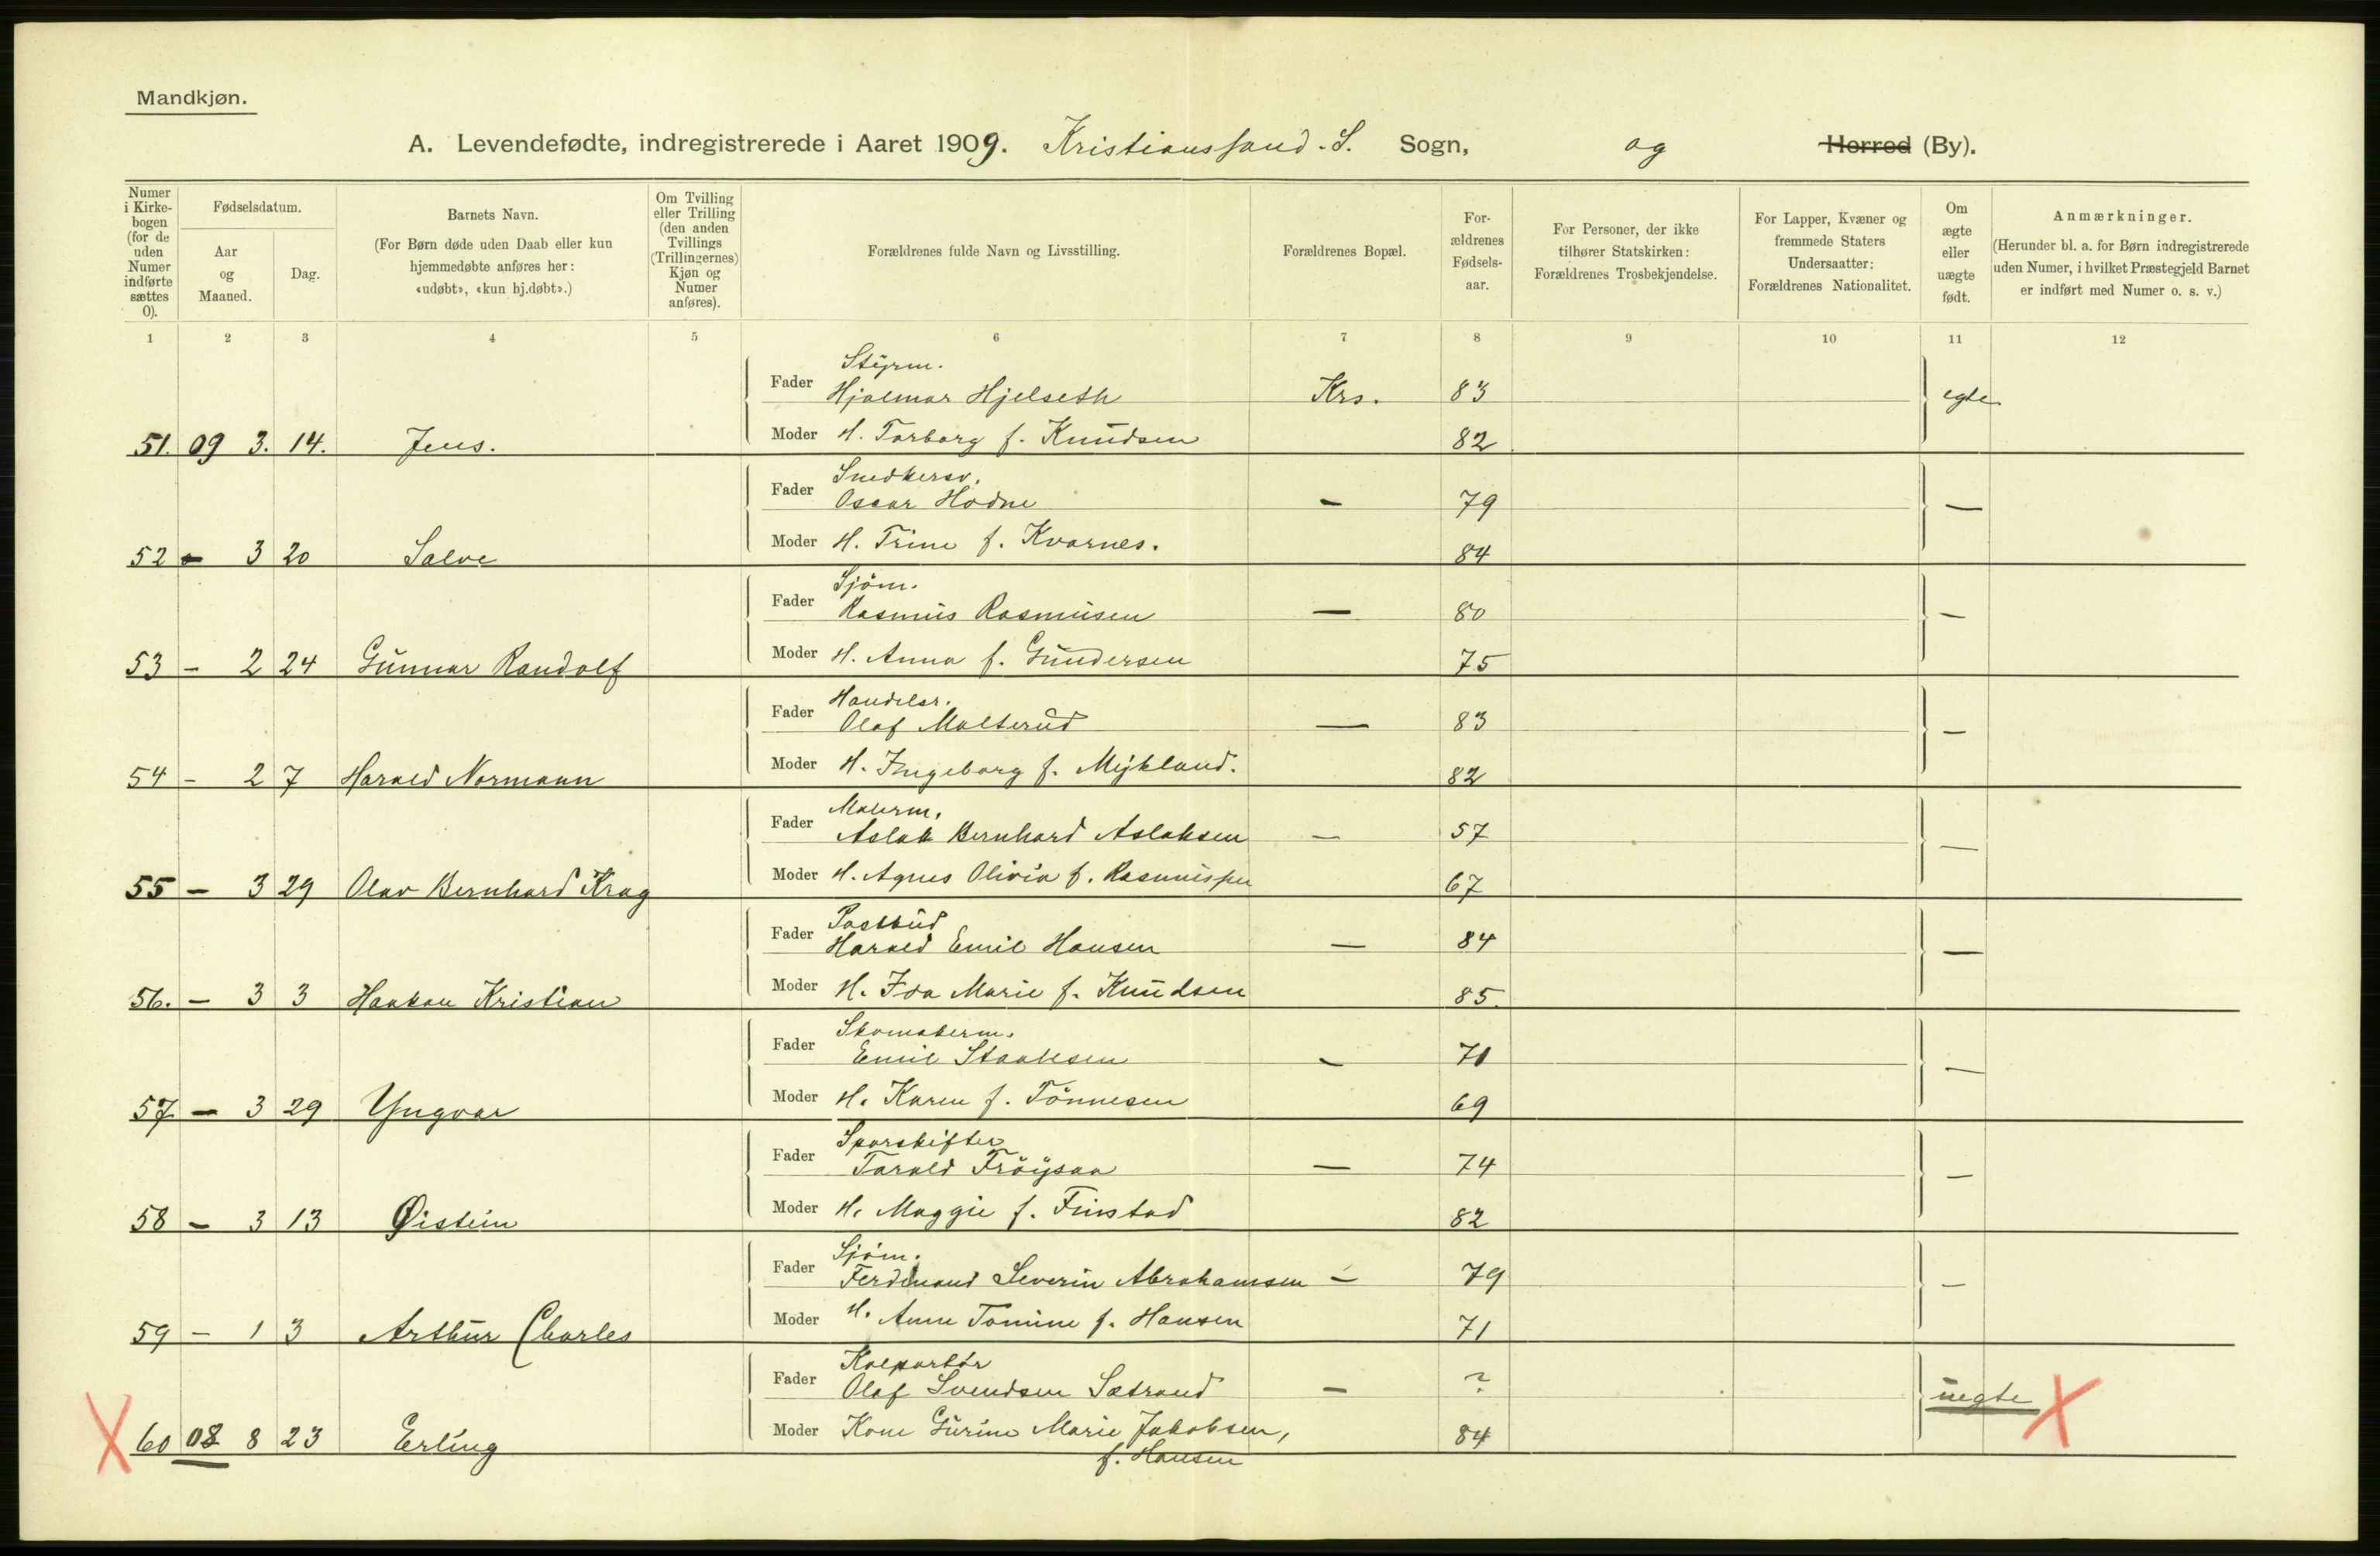 Mandkjøn.
A. Levendefødte, indregistrerede i Aaret 1909. Kristianssand. S. Sogn, og Herred (By).
Numer i Kirke-bogen (for de uden Numer indførte sættes 0).
Fødselsdatum.
Aar og Maaned.
Dag.
Barnets Navn.
(For Børn døde uden Daab eller kun hjemmedøbte anføres her: «udøbt», «kun hj.døbt».)
Om Tvilling eller Trilling (den anden Tvillings (Trillingernes) Kjøn og Numer anføres).
Forældrenes fulde Navn og Livsstilling.
Forældrenes Bopæl.
For-ældrenes Fødsels-aar.
For Personer, der ikke tilhører Statskirken: Forældrenes Trosbekjendelse.
For Lapper, Kvæner og fremmede Staters Undersaatter: Forældrenes Nationalitet.
Om ægte eller uægte født.
Anmærkninger.
(Herunder bl. a. for Børn indregistrerede uden Numer, i hvilket Præstegjeld Barnet er indført med Numer o. s. v.)
1 2 3 4 5 6 7 8 9 10 11 12
Styrm.
Fader Hjalmar Hjelseth Krs. 83 egte
Moder H. Torborg f. Knudsen 82
51. 09 3. 14. Jens.
Snedkersv.
Fader Oscar Hodne — 79 —
Moder H. Trine f. Kvarnes. 84
52 - 3 20 Salve
Sjöm.
Fader Rasmus Rasmusen — 80 —
Moder H. Anna f. Gundersen 75
53 - 2 24 Gunnar Randolf
Handelsr.
Fader Olaf Molterud — 83 —
Moder H. Ingeborg f. Mykland. 82
54 - 2 7 Harald Normann
Malerm.
Fader Aslak Bernhard Aslaksen — 57 —
Moder H. Agnes Olivia f. Rasmussen 67
55 - 3 29 Olav Bernhard Krag
Postbud
Fader Harald Emil Hansen — 84 —
Moder H. Ida Marie f. Knudsen 85.
56. - 3 3 Haakon Kristian
Skomakerm.
Fader Emil Staalesen — 71 —
Moder H. Karen f. Tönnesen 69
57 - 3 29 Yngvar
Sporskifter
Fader Tarald Fröysaa — 74 —
Moder H. Maggie f. Finstad 82
58 - 3 13 Øistein
Sjöm.
Fader Ferdinand Severin Abrahamsen — 79 —
Moder H. Anne Tomine f. Hansen 71
59 - 1 3 Arthur Charles
Kolportör
Fader Olaf Svendsen Sætrand — ? uegte X
Moder Kone Gurine Marie Jakobsen, 84
X 60 08 8 23 Erling
f. Hansen